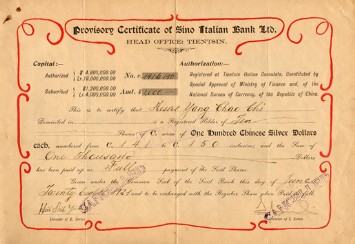 Provisory Certificate of Sino Italian Bank Ltd.
HEAD OFFICE; TIENTSIN.
Capital:-
Authorization:-
Authorized
$ 4,000,000.00
Subscribed
$1,200,000.00
Registered at Tientsin Italian Consulate, Constituted by
Special Approval of Ministry of Finance and, of the
National Bureau of Currency, of the Republic of China.
This is to certify that Messrs Yang Chao Chi
Domiciled in is a Registered Holder of Ten
Shares of C. series of One Hundred Chinese Silver Dollars
each, numbered from C. 141 to C 150 inclusive; and the Sum of
One Thousand Dollars
has been paid up as Full payment of the Said Shares.
Given under the Common Seal of the Said Bank this day of June
Twenty 1921 and to be exchanged with the Regular Share when Paid in full